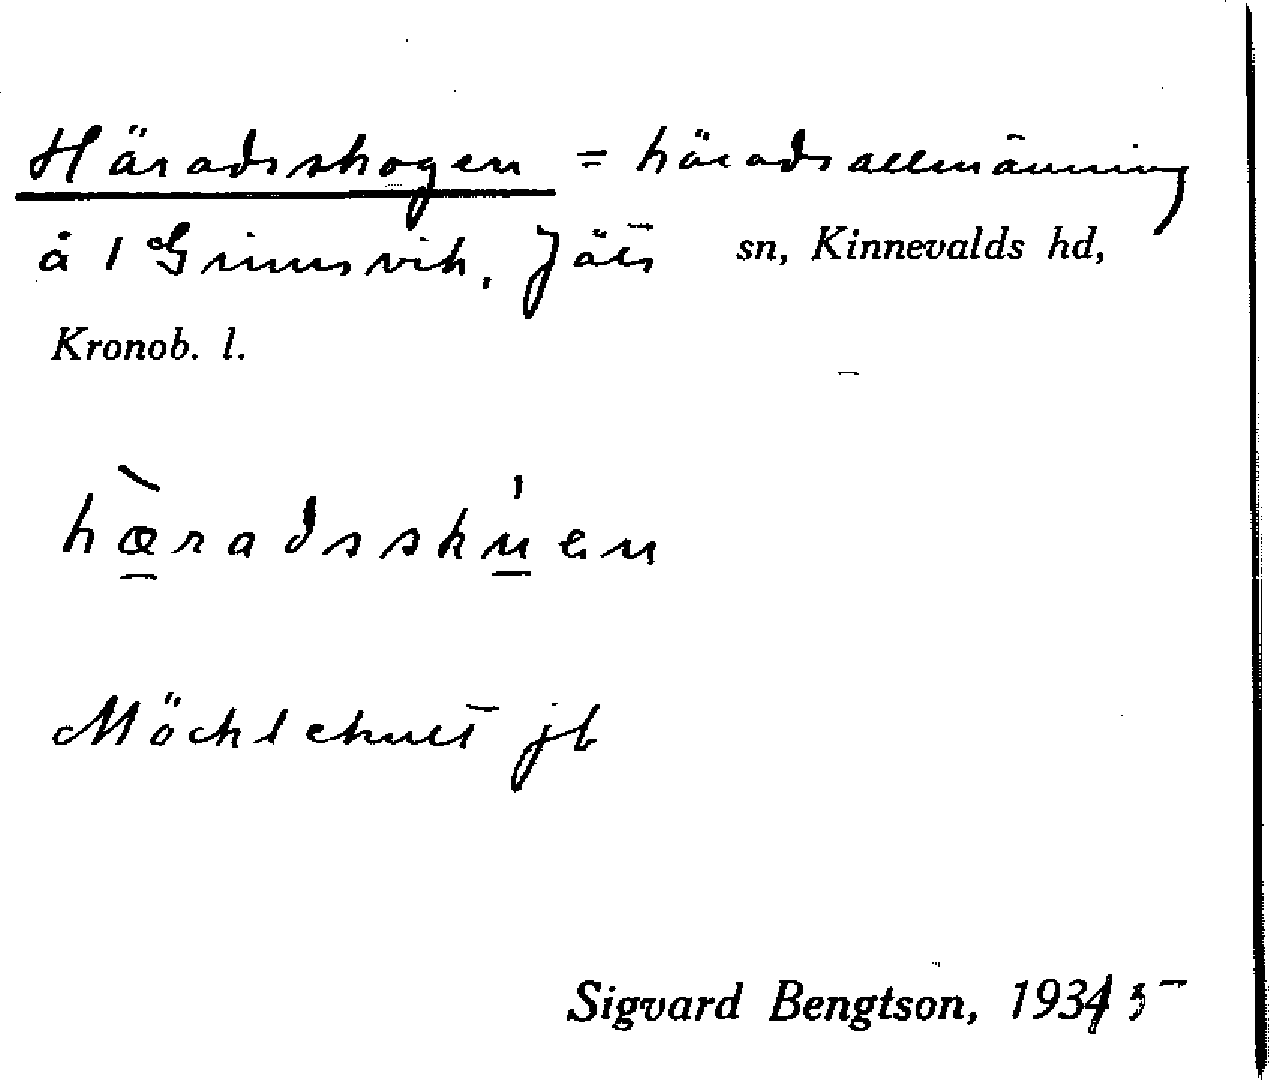 Häradsskogen = häradsallmänning
å 1 Grimsvik, Jäts sn, Kinnevalds hd,
Kronob. l.
hæ̀radsskúen
Möcklehult jb
Sigvard Bengtson, 1934 5